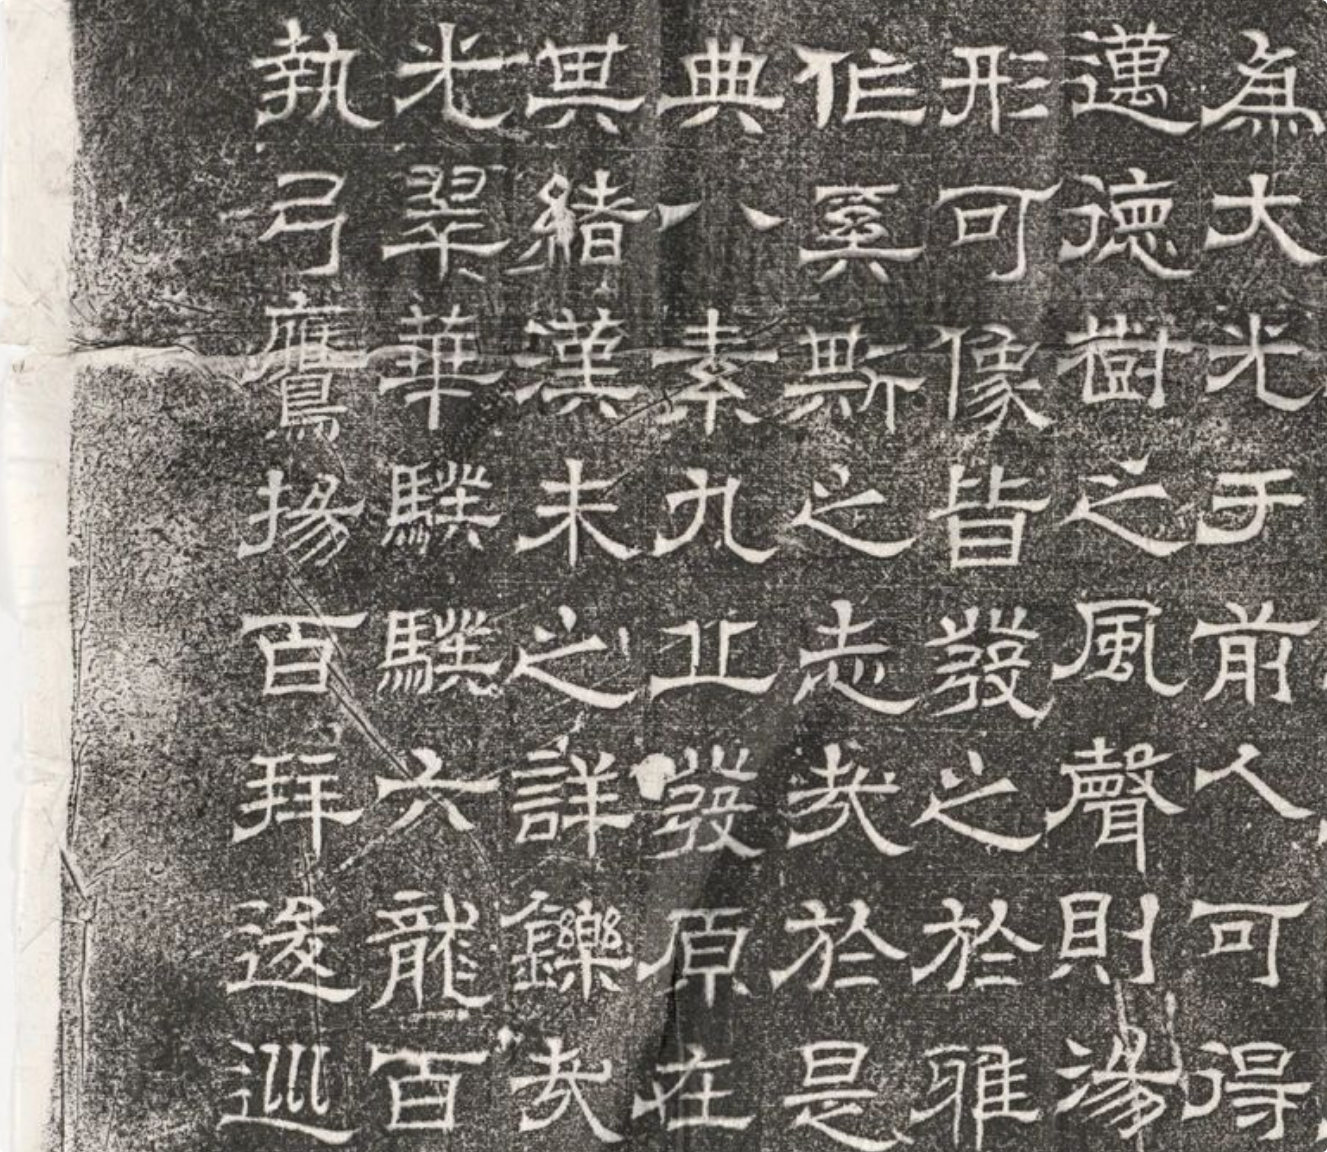 為大光于前人可得
邁德樹之風聲則湯
形可像皆發之於雅
作奚斯之志矣於是
典八素九丘發原在
其緒漢未之詳鑠矣
光翠華騤騤六龍百
執弓鷹揚百拜逡巡